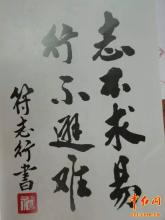 志不求易
行不避难
符志行書
中红网